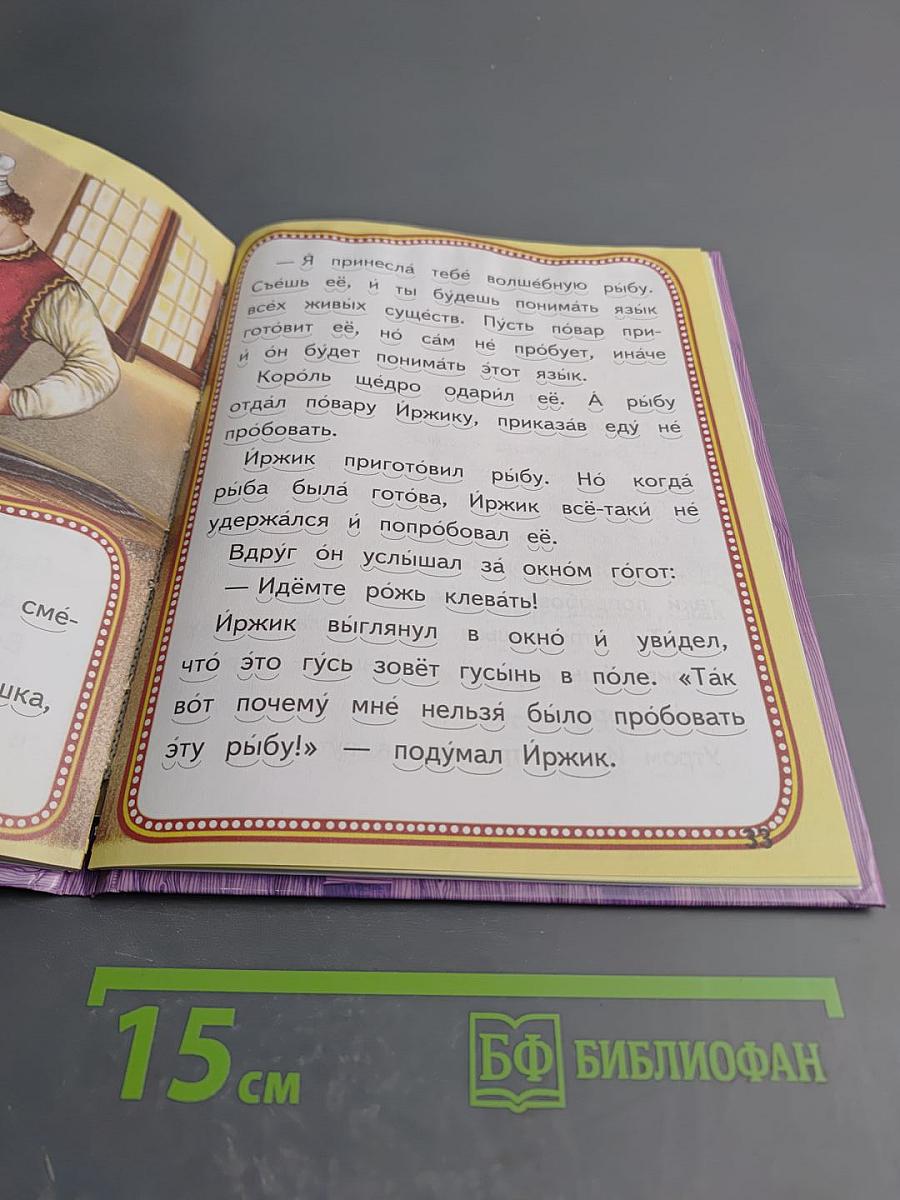 сме́-
шка,
— Я́ принесла́ тебе́ волше́бную ры́бу.
Съе́шь её, и́ ты́ бу́дешь понима́ть язы́к
все́х живы́х суще́ств. Пу́сть по́вар при-
гото́вит её, но́ са́м не́ про́бует, ина́че
и́ о́н бу́дет понима́ть э́тот язы́к.
Коро́ль ще́дро одари́л её. А́ ры́бу
отда́л по́вару И́ржику, приказа́в еду́ не́
про́бовать.
И́ржик пригото́вил ры́бу. Но́ когда́
ры́ба была́ гото́ва, И́ржик всё-таки́ не́
удержа́лся и́ попро́бовал её.
Вдру́г о́н услы́шал за́ окно́м го́гот:
— Идёмте ро́жь клева́ть!
И́ржик вы́глянул в окно́ и́ уви́дел,
что́ э́то гу́сь зовёт гусы́нь в по́ле. «Та́к
во́т почему́ мне́ нельзя́ бы́ло про́бовать
э́ту ры́бу!» — поду́мал И́ржик.
33
15 см
БФ БИБЛИОФАН